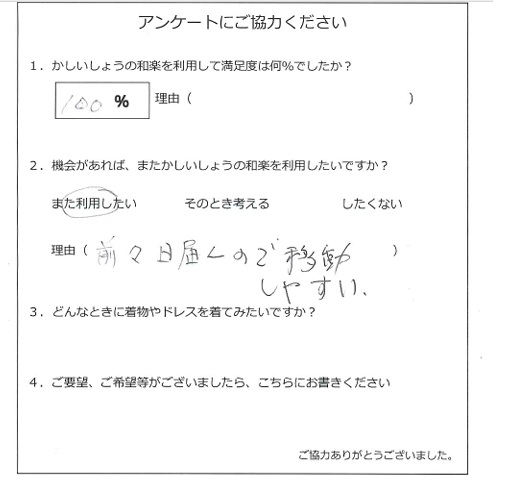 アンケートにご協力ください
1．かしいしょうの和楽を利用して満足度は何%でしたか？
100 % 理由（ ）
2．機会があれば、またかしいしょうの和楽を利用したいですか？
また利用したい そのとき考える したくない
理由（ 前々日届くので移動 ）
しやすい、
3．どんなときに着物やドレスを着てみたいですか？
4．ご要望、ご希望等がございましたら、こちらにお書きください
ご協力ありがとうございました。